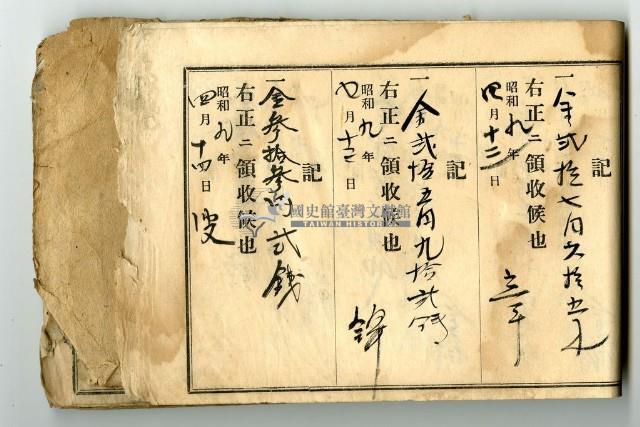 記
一金弐拾七円六拾五戋
右正ニ領收候也
昭和九年
四月十二日
記
一金弐拾五円九拾弐戋
右正ニ領收候也
昭和九年
月
日
記
一金参拾参円弐錢
右正ニ領收候也
昭和九年
四月十四日
國史館臺灣文獻館
TAIWAN HISTORICA